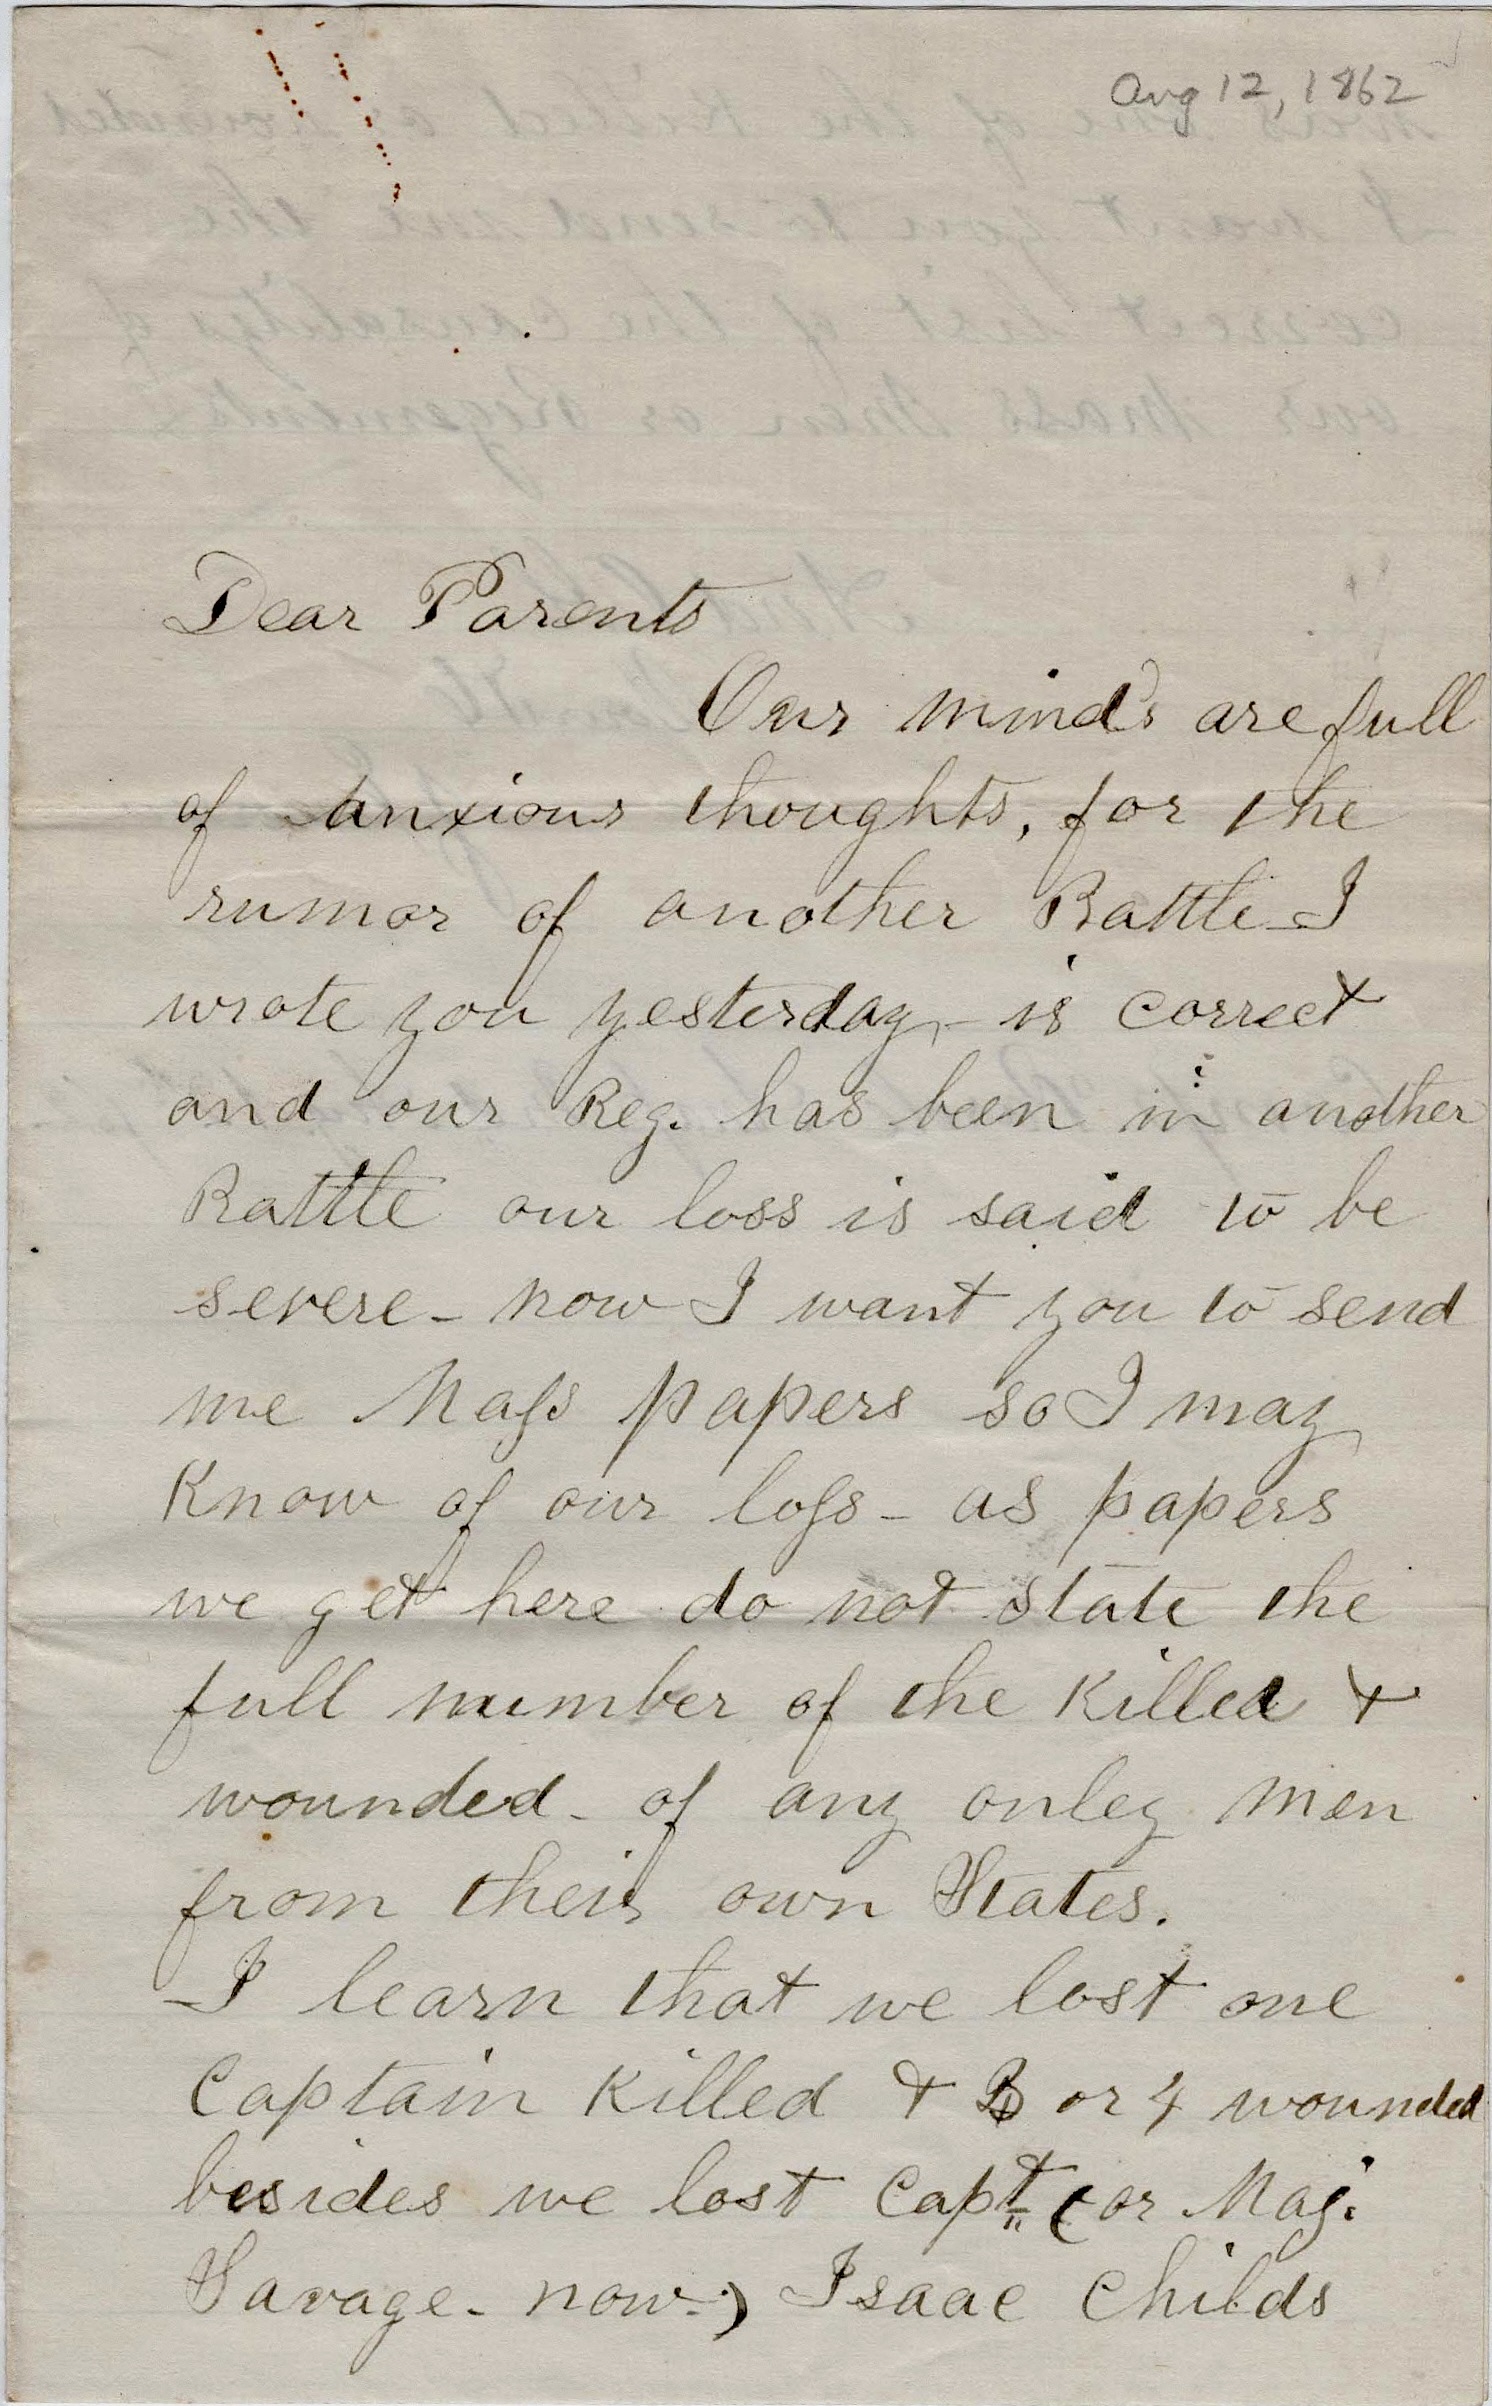 Aug 12, 1862
Dear Parents
Our minds are full
of anxious thoughts, for the
rumor of another Battle I
wrote you yesterday - is correct
and our Reg. has been in another
Battle our loss is said to be
severe - now I want you to send
me Mass papers so I may
Know of our loss - as papers
we get here do not state the
full number of the Killed &
wounded - of any onley men
from their own States.
I learn that we lost one
Captain Killed & 3 or 4 wounded
besides we lost Capt (or Maj.
Savage - now -) Isaac Childs